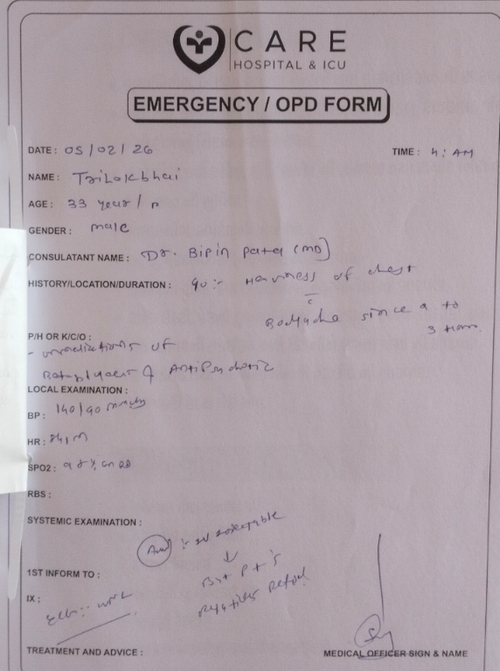 CARE
HOSPITAL & ICU
EMERGENCY / OPD FORM
DATE : 05/02/26 TIME : 4: AM
NAME : Trilokbhai
AGE : 33 year / m
GENDER : male
CONSULATANT NAME : Dr. Bipin Patel (MD)
HISTORY/LOCATION/DURATION : heaviness of chest
c̄
Bodyache since 2 to
3 
P/H OR K/C/O :
of
& Antipsychotic
LOCAL EXAMINATION :
BP : 140/90 mmHg
HR : 84/m
SPO2 : 98%
RBS :
SYSTEMIC EXAMINATION :
Adv :-
↓
But Pt's
relatives Refuse
1ST INFORM TO :
IX :
ECG :- WNL
TREATMENT AND ADVICE :
MEDICAL OFFICER SIGN & NAME